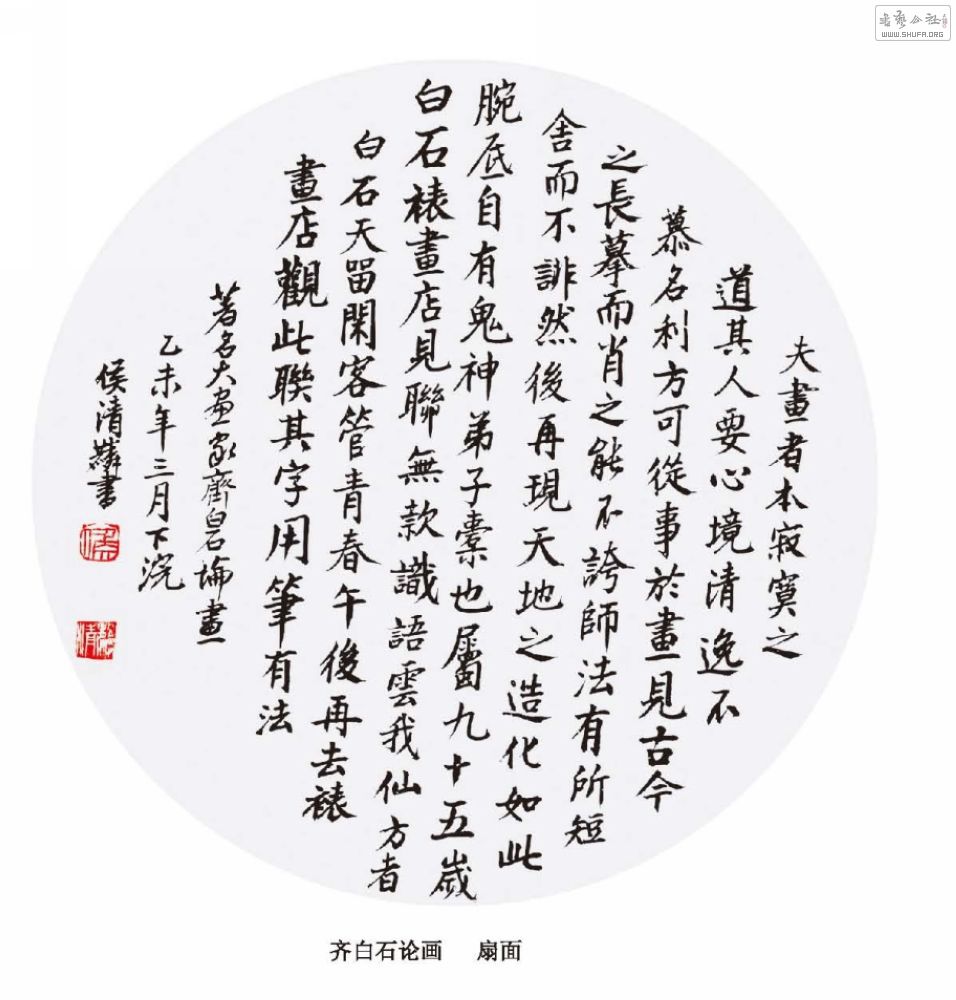 書藝公社
WWW.SHUFA.ORG
夫畫者本寂寞之
道其人要心境清逸不
慕名利方可從事於畫見古今
之長摹而肖之能不誇師法有所短
舍而不誹然後再現天地之造化如此
腕底自有鬼神弟子橐也屬九十五歲
白石裱畫店見聯無款識語雲我仙方者
白石天留閑客管青春午後再去裱
畫店觀此聯其字用筆有法
著名大画家齊白石論畫
乙未年三月下浣
侯清麟書
齐白石论画 扇面